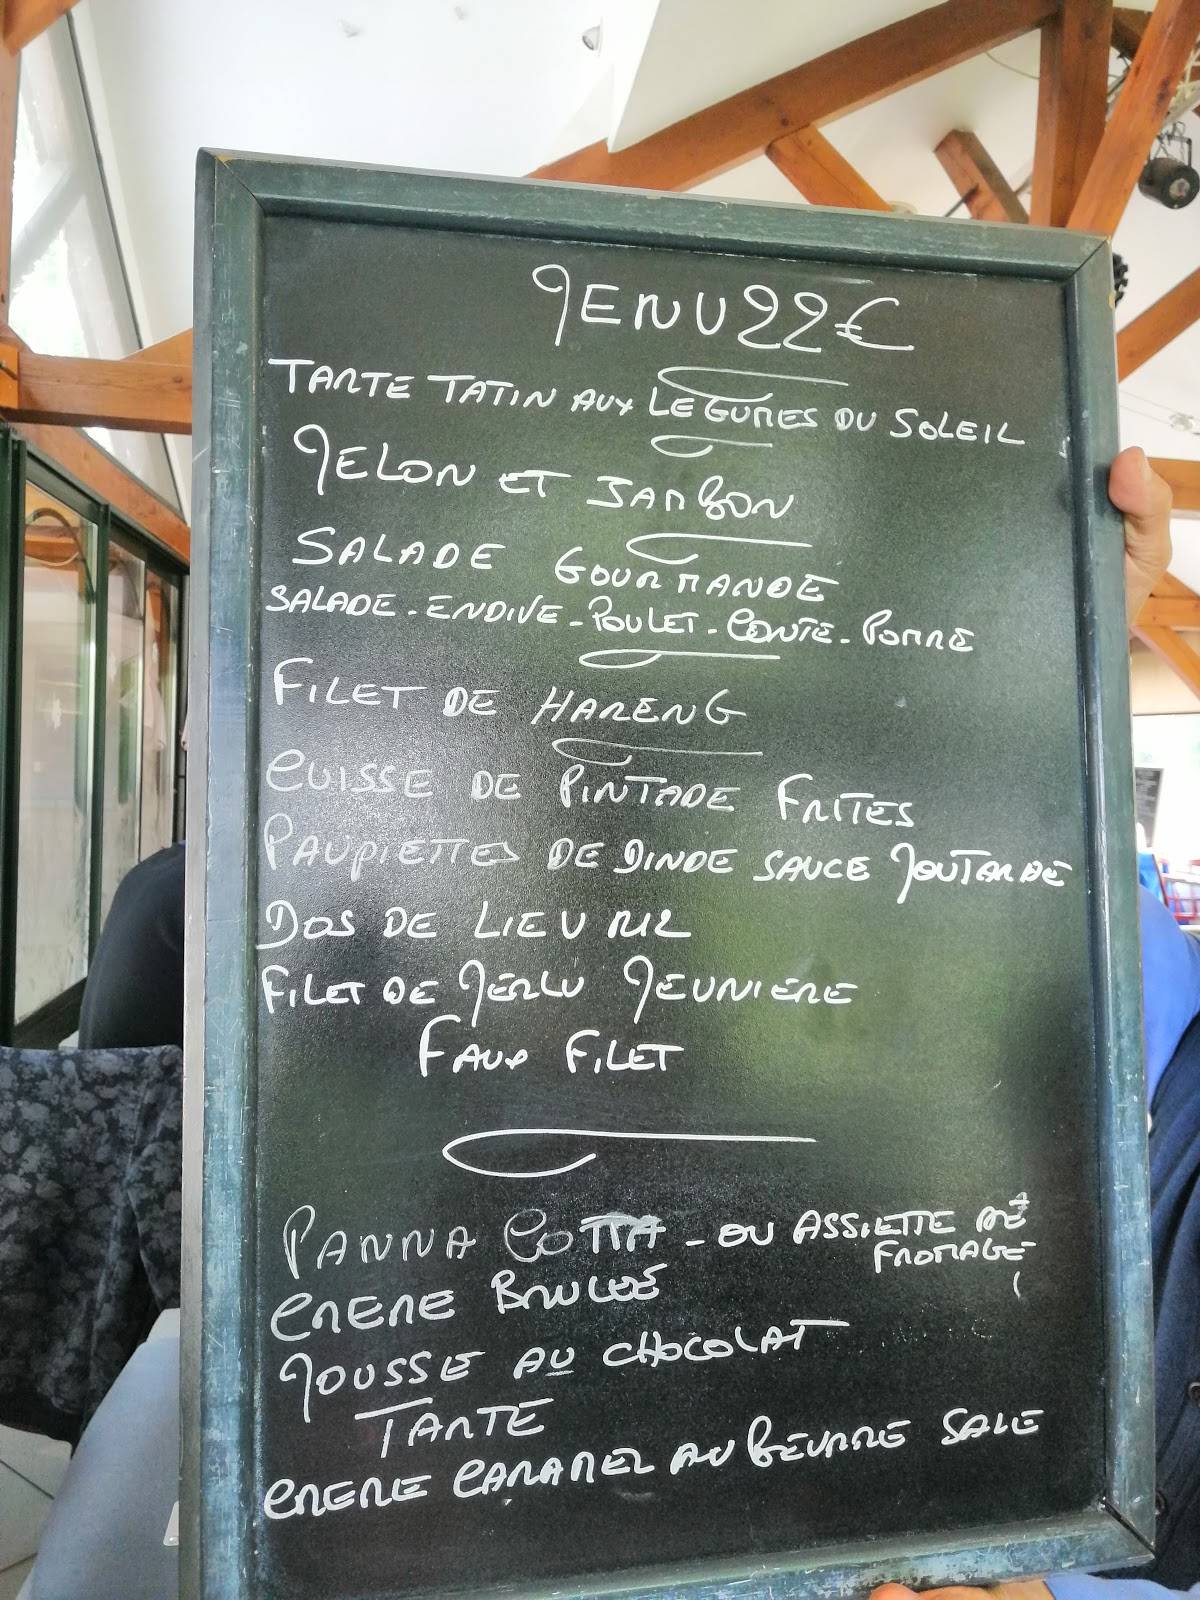 MENU 22€
TARTE TATIN AUX LEGUMES DU SOLEIL
MELON ET JAMBON
SALADE GOURMANDE
SALADE - ENDIVE - POULET - COMTE - POMME
FILET DE HARENG
CUISSE DE PINTADE FRITES
PAUPIETTES DE DINDE SAUCE MOUTARDE
DOS DE LIEU RIZ
FILET DE MERLU MEUNIERE
FAUX FILET
PANNA COTTA - OU ASSIETTE DE
FROMAGE
CREME BRULEE
MOUSSE AU CHOCOLAT
TARTE
CREME CARAMEL AU BEURRE SALE